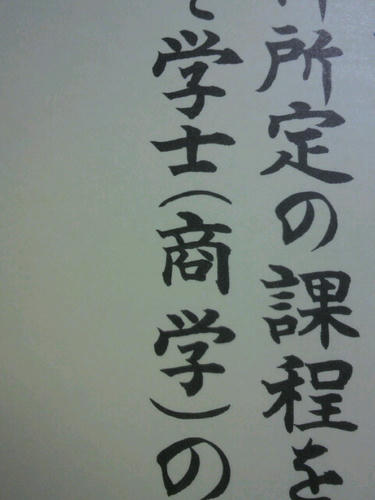 所定の課程を
学士(商学)の